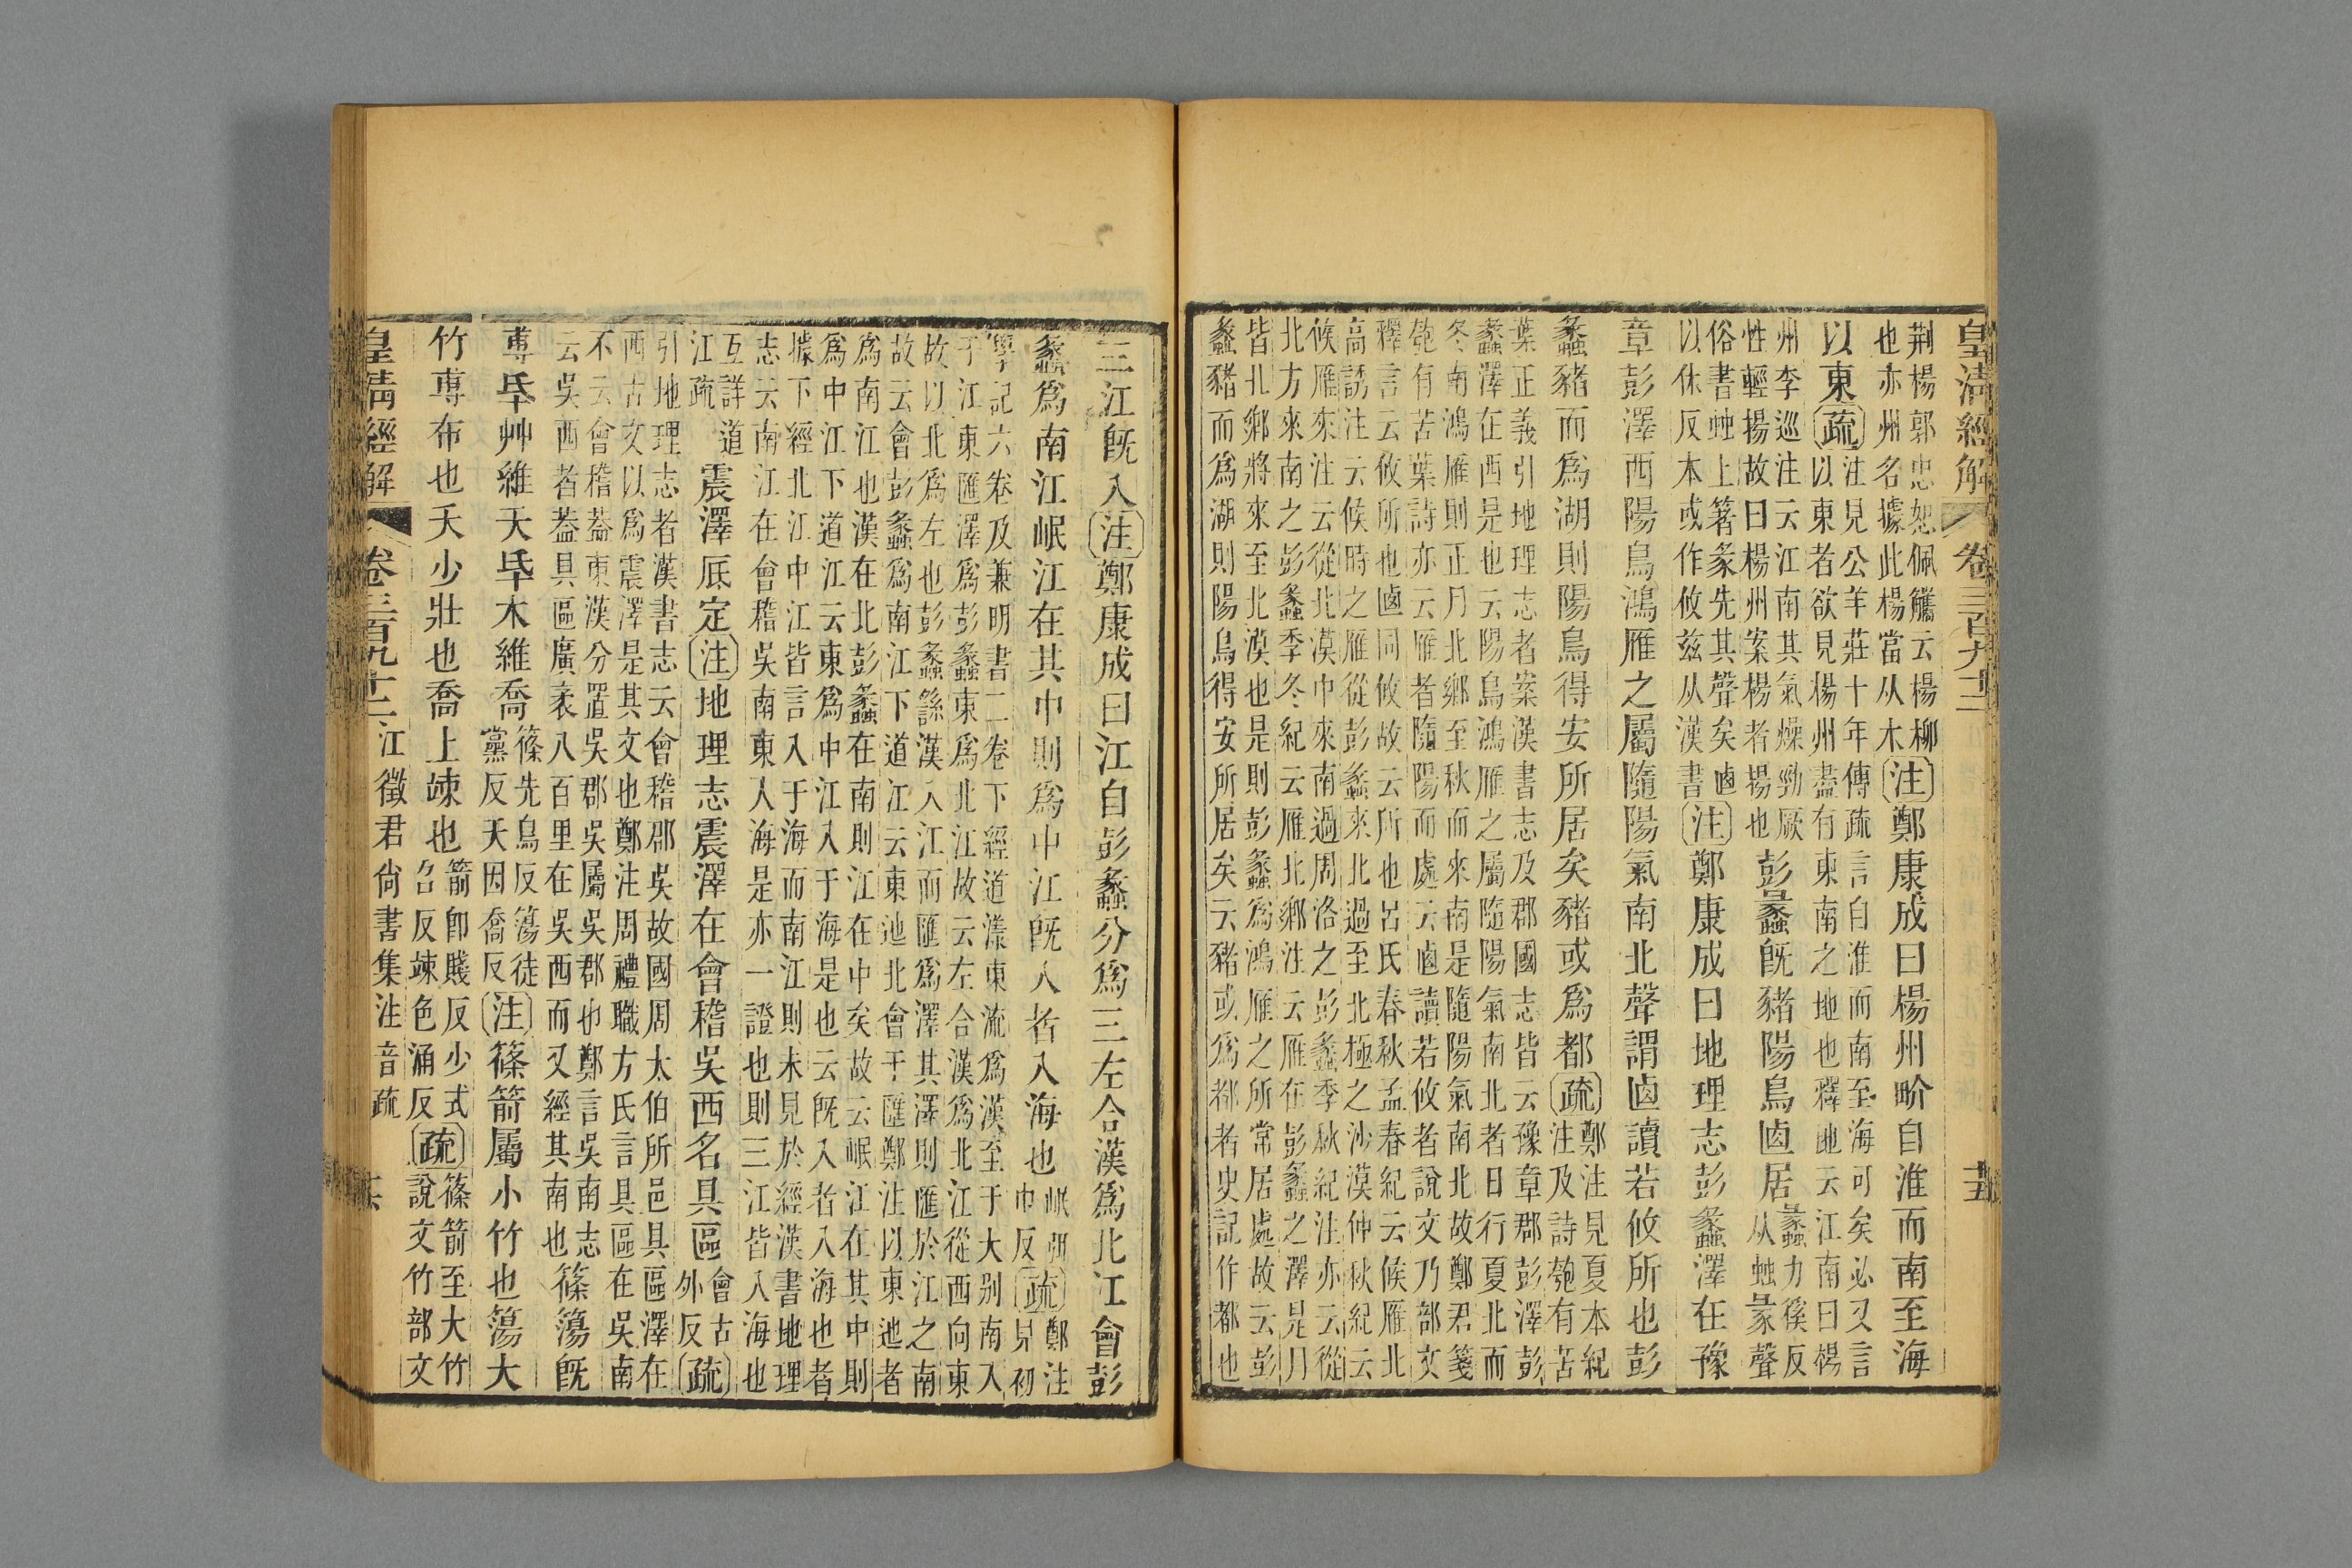 皇淸經解 卷三百九十二
荆楊郭忠恕佩觿云楊柳
也亦州名據此楊當从木
注鄭康成曰楊州畍自淮而南至海
以東疏
注見公羊莊十年傳疏言自淮而南至海可矣必又言
以東者欲見楊州盡有東南之地也釋地云江南曰楊
州李巡注云江南其氣燥勁厥
性輕揚故曰楊州案楊者揚也
彭蠡旣豬陽鳥逌居
蠡力徯反
从䖵彖聲
俗書䖵上箸彖先其聲矣逌
以休反本或作攸兹从漢書
注鄭康成曰地理志彭蠡澤在豫
章彭澤西陽鳥鴻雁之屬隨陽氣南北聲謂逌讀若攸所也彭
蠡豬而爲湖則陽鳥得安所居矣豬或爲都疏
鄭注見夏本紀
注及詩匏有苦
葉正義引地理志者案漢書志及郡國志皆云豫章郡彭澤彭
蠡澤在西是也云陽鳥鴻雁之屬隨陽氣南北者日行夏北而
冬南鴻雁則正月北鄉至秋而來南是隨陽氣南北故鄭君箋
匏有苦葉詩亦云雁者隨陽而處云逌讀若攸者說文乃部文
釋言云攸所也逌同攸故云所也呂氏春秋孟春紀云候雁北
高誘注云候時之雁從彭蠡來北過至北極之沙漠仲秋紀云
候雁來注云從北漠中來南過周洛之彭蠡季秋紀注亦云從
北方來南之彭蠡季冬紀云雁北鄉注云雁在彭蠡之澤是月
皆北鄉將來至北漠也是則彭蠡爲鴻雁之所常居處故云彭
蠡豬而爲湖則陽鳥得安所居矣云豬或爲都者史記作都也
三江旣入注鄭康成曰江自彭蠡分爲三左合漢爲北江會彭
蠡爲南江岷江在其中則爲中江旣入者入海也
岷䎞
巾反
疏
鄭注
見初
學記六卷及兼明書二卷下經道漾東流爲漢至于大别南入
于江東匯澤爲彭蠡東爲北江故云左合漢爲北江從西向東
故以北爲左也彭蠡繇漢入江而匯爲澤其澤則匯於江之南
故云會彭蠡爲南江下道江云東迆北會于匯鄭注以東迆者
爲南江也漢在北彭蠡在南則江在中矣故云岷江在其中則
爲中江下道江云東爲中江入于海是也云旣入者入海也者
據下經北江中江皆言入于海而南江則未見於經漢書地理
志云南江在會稽吳南東入海是亦一證也則三江皆入海也
互詳道
江疏
震澤厎定注地理志震澤在會稽吳西名具區
會古
外反
疏
引地理志者漢書志云會稽郡吳故國周太伯所邑具區澤在
西古文以爲震澤是其文也鄭注周禮職方氏言具區在吳南
不云會稽葢東漢分置吳郡吳屬吳郡也鄭言吳南志
云吳西者葢具區廣袤八百里在吳西而又經其南也
篠簜旣
尃氒艸維夭氒木維喬
篠先鳥反簜徒
黨反夭因喬反
注篠箭屬小竹也簜大
竹尃布也夭少壯也喬上竦也
箭卽賤反少式
召反竦色涌反
疏
篠箭至大竹
說文竹部文
皇淸經解 卷三百九十二 江徵君尙書集注音疏